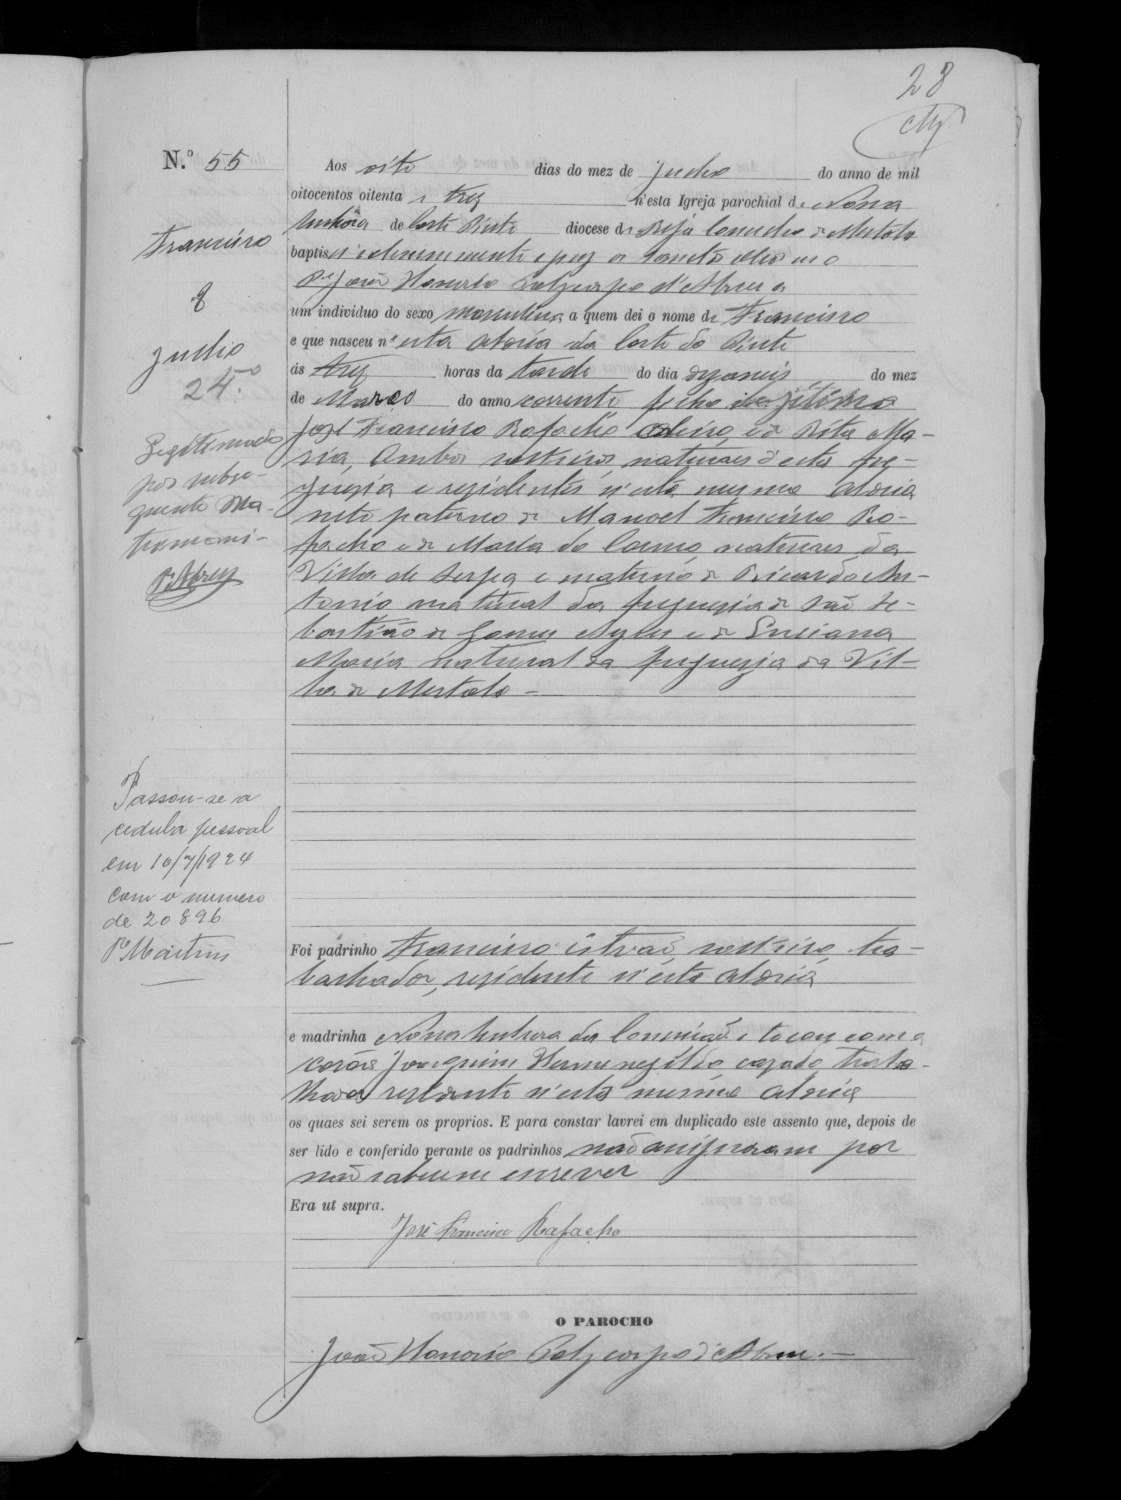 28
N.º 55
Aos oito dias do mez de Julho do anno de mil
oitocentos oitenta e trez n'esta Igreja parochial de Nossa
Senhora de Corte Pinto diocese de Beja Concelho de Mertola
baptisei solemnemente e puz os santos oleos eu o
Pe João Honorio Polycarpo d'Abreu
um individuo do sexo masculino a quem dei o nome de Francisco
e que nasceu n'esta aldeia da Corte do Pinto
ás trez horas da tarde do dia dezaseis do mez
de Março do anno corrente filho
José Francisco Rafacho solteiro, e de Rita Ma-
ria, ambos naturaes d'esta fre-
guezia e rezidentes n'esta mesma aldeia
neto paterno de Manoel Francisco Ro-
facho e de Maria do Carmo, naturaes da
Villa de Serpa e materno de Ricardo An-
tonio natural da freguezia de São Se-
bastião de Gomes Ayres e de Luciana
Maria natural da freguezia da Vil-
la de Mertola -
Francisco
8
Julho
24.º
Legitimado
por subse-
quente Ma-
trimoni-
Pe Abreu
Passou-se a
cedula pessoal
em 10/7/1924
com o numero
de 20896
Pe Martins
Foi padrinho Francisco Estevão, solteiro, tra-
balhador, rezidente n'esta aldeia
e madrinha Nossa Senhora da Conceição e tocou com a
corôa Joaquim Hermenegildo, cazado, traba-
lhador rezidente n'esta mesma aldeia
os quaes sei serem os proprios. E para constar lavrei em duplicado este assento que, depois de
ser lido e conferido perante os padrinhos não assignaram por
não saberem escrever
Era ut supra.
José Francisco Rafacho
O PAROCHO
João Honorio Polycarpo d'Abreu. -